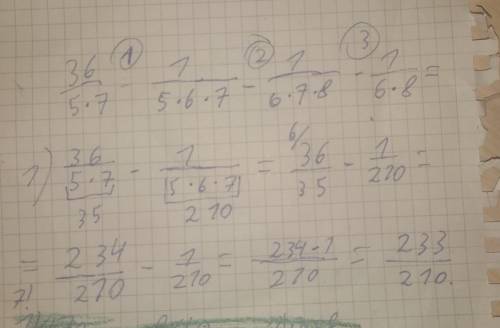 ① ② ③
36/(5·7) - 1/(5·6·7) - 1/(6·7·8) - 1/(6·8) =
1) 36/[5·7] - 1/[5·6·7] = 6/ 36/35 - 1/210 =
35 210
= 234/210 - 1/210 = (234-1)/210 = 233/210.
7!